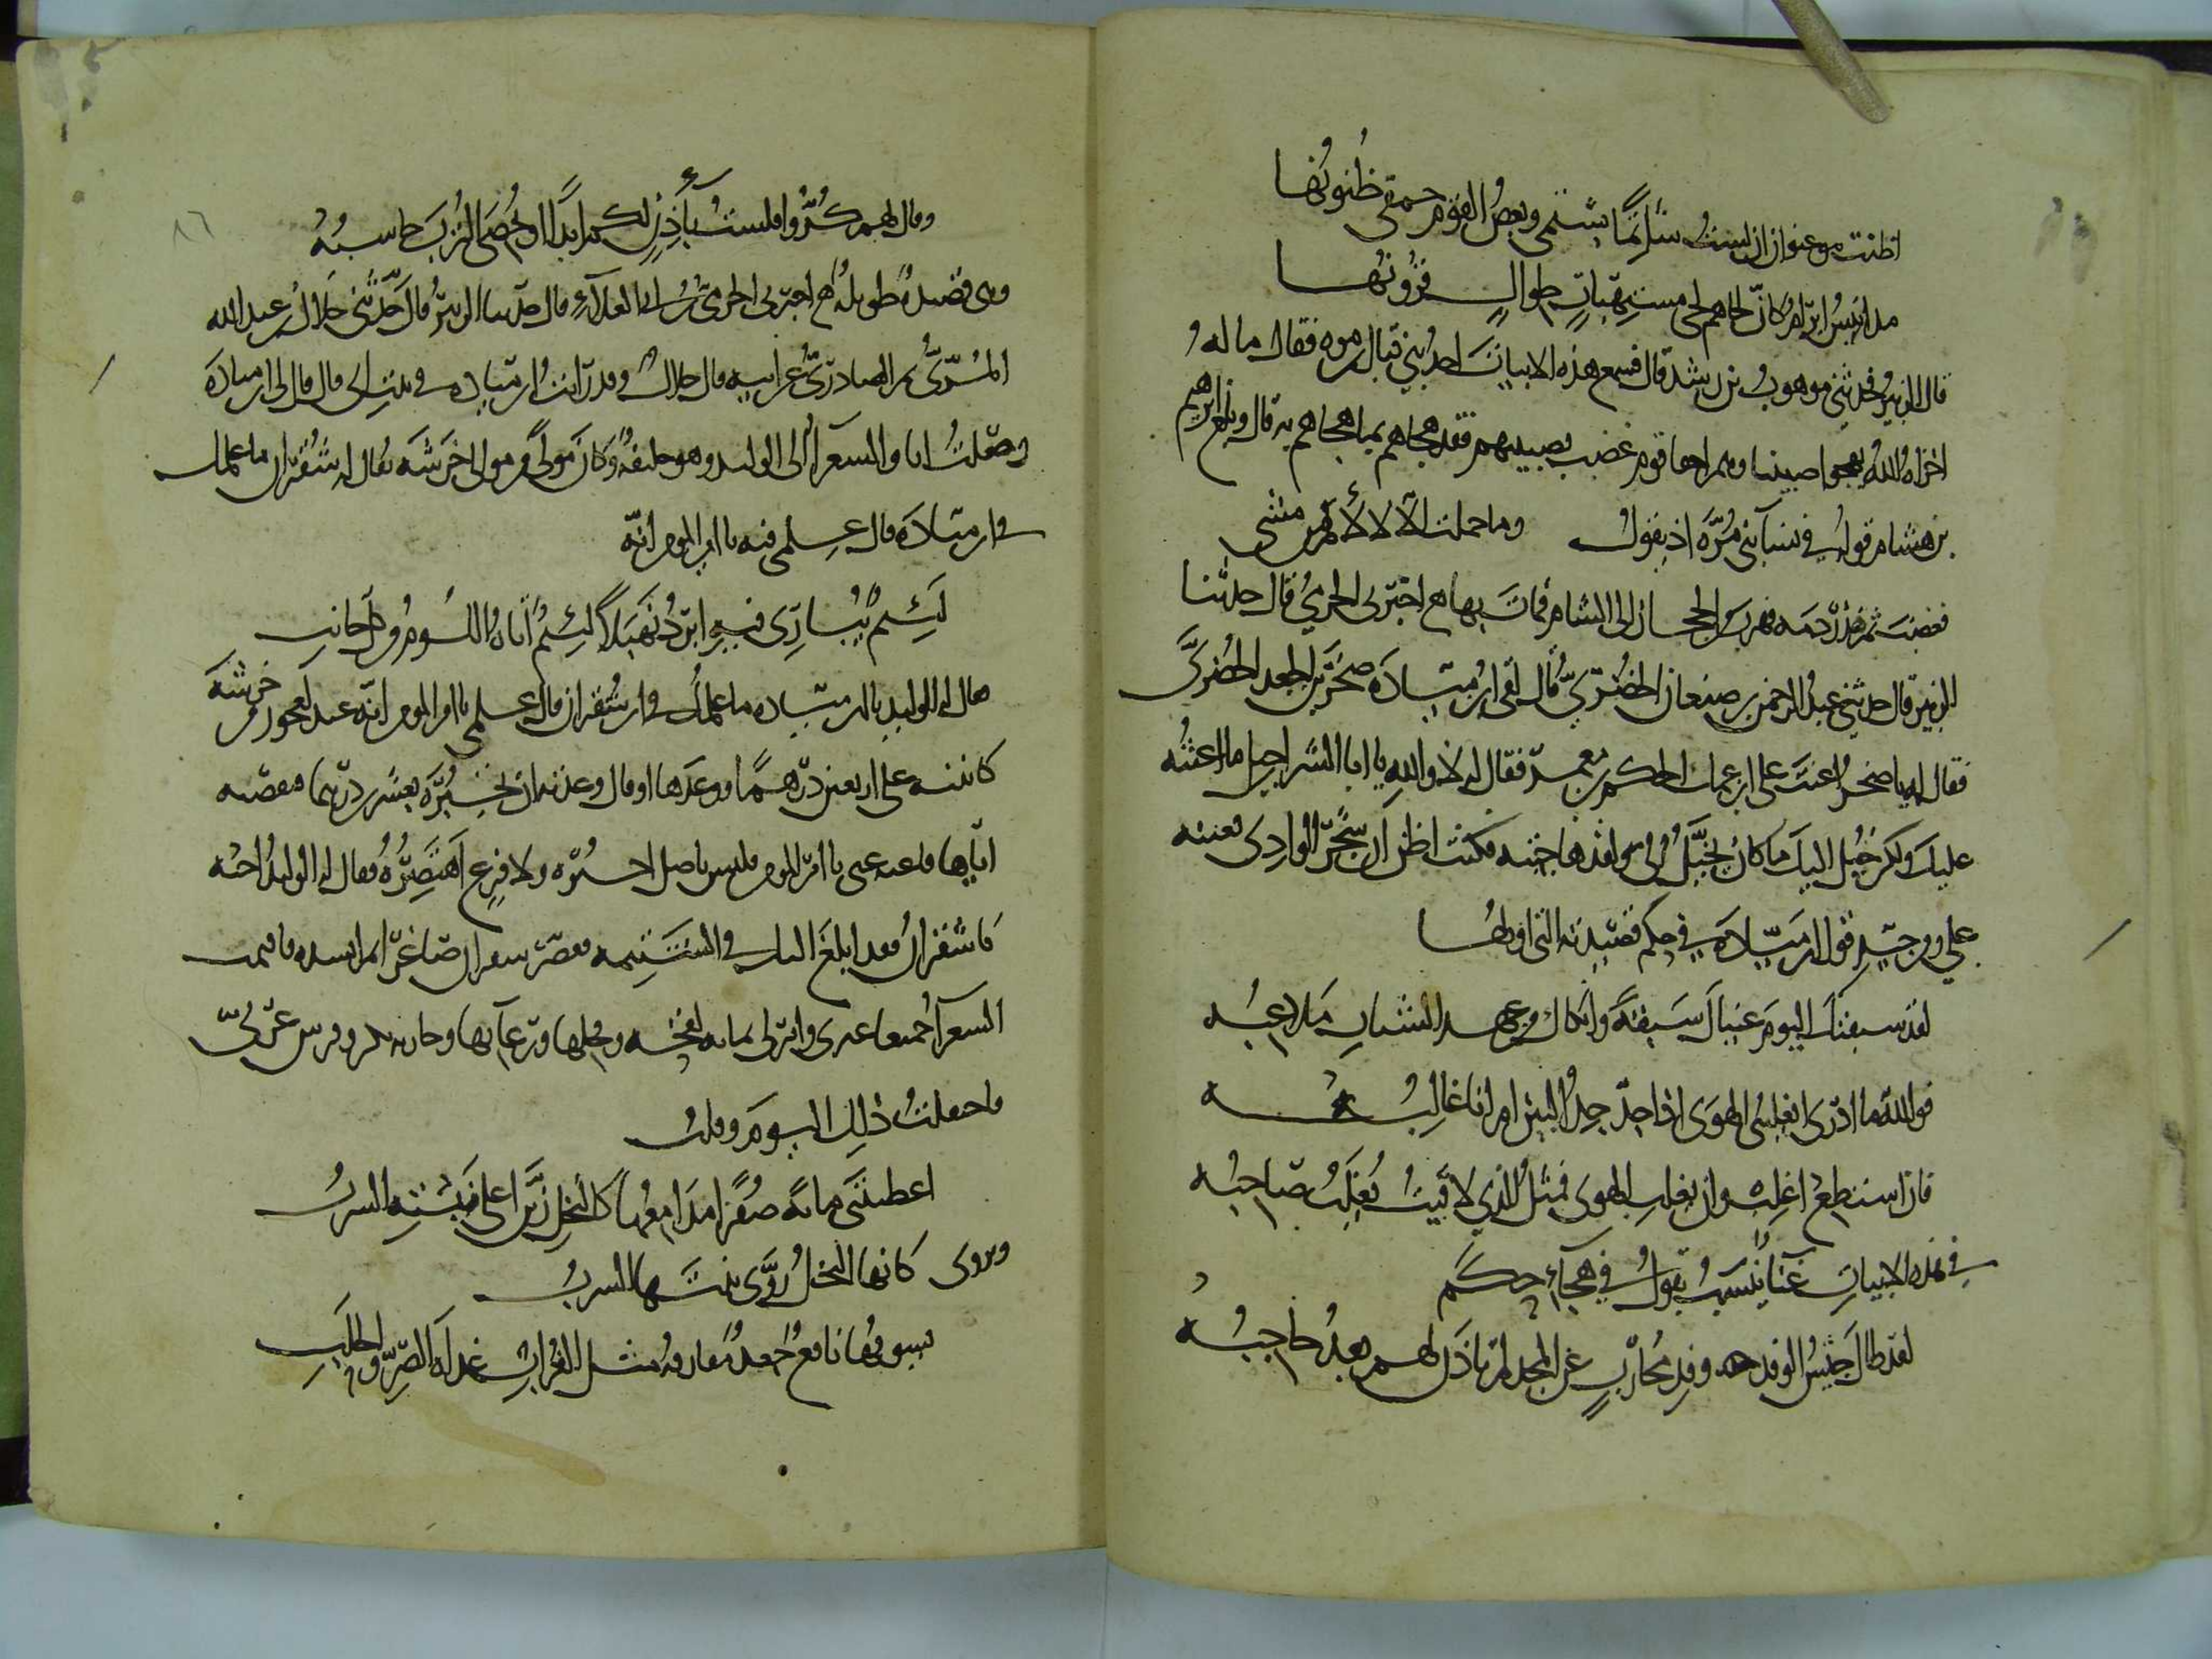 اظنت سفها ان لست شاتما بشتمى وبعض القوم حمقى ظنونها
مدانيس ابرام كان لحاهم لحى مستهبات طوال قرونها
قال الزبير فحدثني موهوب بن رشيد قال فسمع هذه الابيات احد بني قتال بن مره فقال ما له
اخزاه الله يهجوا صبيتنا وهم اجفا قوم غضب لصبيتهم فقد هجاهم بما هجاهم به قال وبلغ ابرهيم
بن هشام قوله في نسآ بني مره اذ يقول وما حملت الا لالأم من مشى
فغضب ثم نذر دمه فهرب من الحجاز الى الشام فمات بها اخبرني الحرمي قال حدثنا
الزبير قال حدثني عبد الرحمن بن ضبعان الخضري قال لقى ابن ميادة صخر بن الجعد الخضري
فقال له يا صخر اعنت على ابن عمك الحكم بن معمر فقال له لا والله يا ابا الشراحيل ما اعنته
عليك ولكن خيل اليك ما كان يخيل الي ولقد هاجيته فكنت اظن ان شجر الوادي تعينه
علي ومن جيد قول ابن ميادة في حكم قصيدته التي اولها
لقد سبقتك اليوم عيناك سبقة وابكاك من عهد الشباب ملاعبه
فوالله ما ادري ايغلبني الهوى اذا جد جد البين ام انا غالبه
فان استطع اغلب وان يغلب الهوى فمثل الذي لاقيت يغلب صاحبه
في هذه الابيات غنا ينسب يقول في هجآء حكم
لقد طال حبس الوفد وفد محارب عن المجد لم ياذن لهم بعد حاجبه
وقال لهم كروا فلست بآذن لكم ابدا او يحصى الترب حاسبه
وهى قصيدة طويلة اخبرني الحرمي بن ابي العلآء قال حدثنا الزبير قال حدثني جلال بن عبد الله
المري ثم الصادري عن ابيه قال جلال وقد رايت ابن ميادة في بيت ابي قال قال لي ابن ميادة
وصلت انا والشعرآء الى الوليد وهو خليفة وكان مولى من موالي خرشة يقال له شقران ما علمك
في ابن ميادة قال علمي فيه يا امير المومنين انه
لئيم يباري فيه ابرد نهبلا لئيم اتاه اللوم من كل جانب
فقال له الوليد يا ابن ميادة ما علمك في ابن شقران قال علمي يا امير المومنين انه عبد لعجوز من خرشة
كاتبته على اربعين درهما ووعدها او قال وعدته ان تجيزه بعشرين درهما فقبضته
اياها فاغنه عني يا امير المومنين فليس باصل احتفره ولا فرع اهتصره فقال له الوليد اجتنبه
يا شقران فقد ابلغ اليك في الشتيمة فقصر شقران صاغرا ثم انشدته فاقيمت
الشعرآء جميعا غيري وامر لي بماية لقحة وفحلها ورعآئها وجارية بكر وفرس عتيق
فاختلت ذلك اليوم وقلت
اعطيتني ماية صفرا مدامعها كالنخل زين اعلى نبته الشرب
ويروى كانها النخل روى نبتها الشرب
يسوقها يافع جعد مفارقه مثل الغراب غذاه الصر والحلب